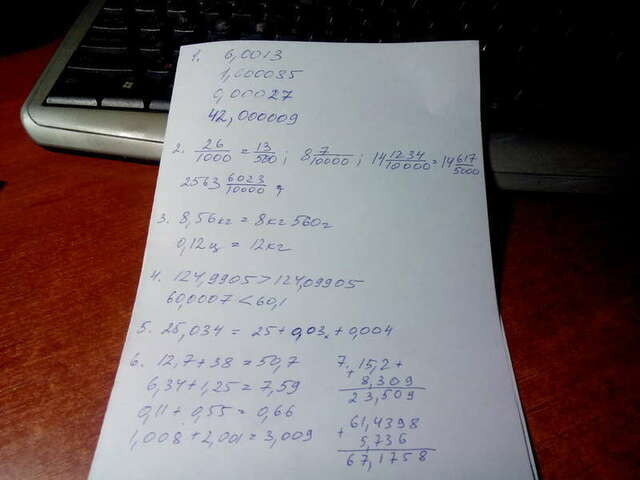 1. 6,0013
1,000035
0,00027
42,000009
2. 26/1000 = 13/500 ; 8 7/10000 ; 14 1234/10000 = 14 617/5000
2563 6023/10000
3. 8,56кг = 8кг 560г
0,12ц = 12кг
4. 124,9905 > 124,09905
60,0007 < 60,1
5. 25,034 = 25 + 0,03 + 0,004
6. 12,7 + 38 = 50,7
6,34 + 1,25 = 7,59
0,11 + 0,55 = 0,66
1,008 + 2,001 = 3,009
7. 15,2 +
+ 8,309
23,509
61,4398
+ 5,736
67,1758